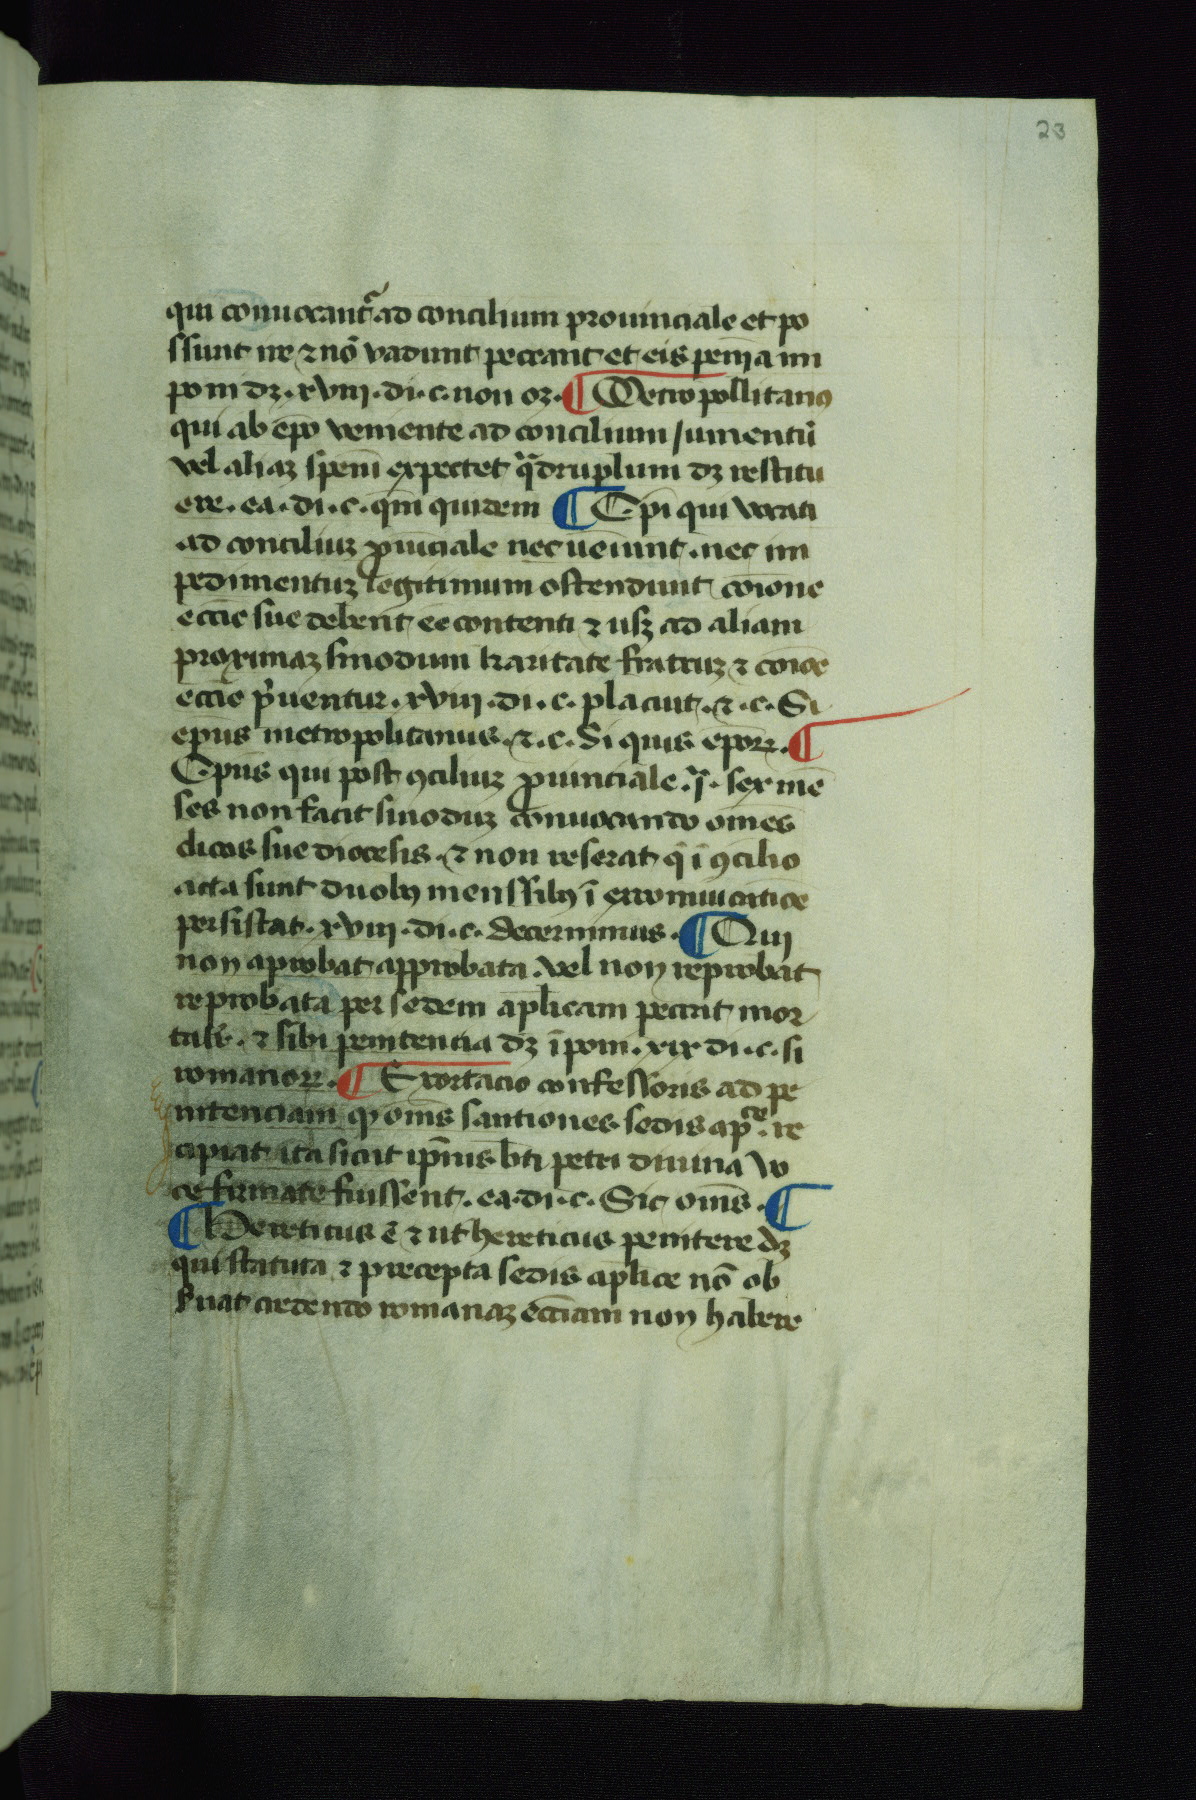 23
qui conuocant᷑ ad concilium prouinciale et po
ssunt ire ⁊ nō vadunt peccant et eis penīa im
poni dꝫ. xviii. di. c. non oꝫ. ¶ Metropollitanus
qui ab ep̄o veniente ad concilium iumentū
vel aliaꝫ speni expectet q̄druplum dꝫ restitu
ere. ea. di. c. qm̄ quidem ¶ Ep̄i qui vocati
ad conciliuꝫ ꝓuīciale nec ueīunt. nec im
pedimentuꝫ legitimum ostendunt cōione
ecc̄ie sue debent eē contenti ⁊ usꝫ ad aliam
proximaꝫ sinodum karitate fratruꝫ ⁊ cōiōe
ecc̄ie p̄uentur. xviii. di. c. placuit. ⁊. c. Si
ep̄us metropolitanus. ⁊. c. Si quis ep̄oꝝ. ¶
Ep̄us qui post ꝯciliuꝫ ꝓuinciale. ı̄. sex mē
ses non facit sinoduꝫ conuocando om̄es
clicos sue diocesis. ⁊ non reserat q̄ ī ꝯcilio
acta sunt duobꝫ menssibꝫ ī excomuīcatiōe
persistat. xviii. di. c. decernimus. ¶ Qui
non aprobat approbata. vel non reprobat
reprobata per sedem aplicam peccat mor
talr̄. ⁊ sibi penitencia dꝫ īponi. xix di. c. si
romanoꝝ. ¶ Exortacio confessoris ad pe
nitenciam qͥ om̄s santiones sedis apᶜᵉ. re
cipiat ita sicut ip̄ius bt̄i petri diuina vo
ce firmate fuissent. ea. di. c. Sic om̄s. ¶
¶ Hereticus ē ⁊ ut hereticus penitere dꝫ
qui statuta ⁊ precepta sedis ap̄lice nō ob
s̄uat credendo romanaꝫ ecc̄iam non habere